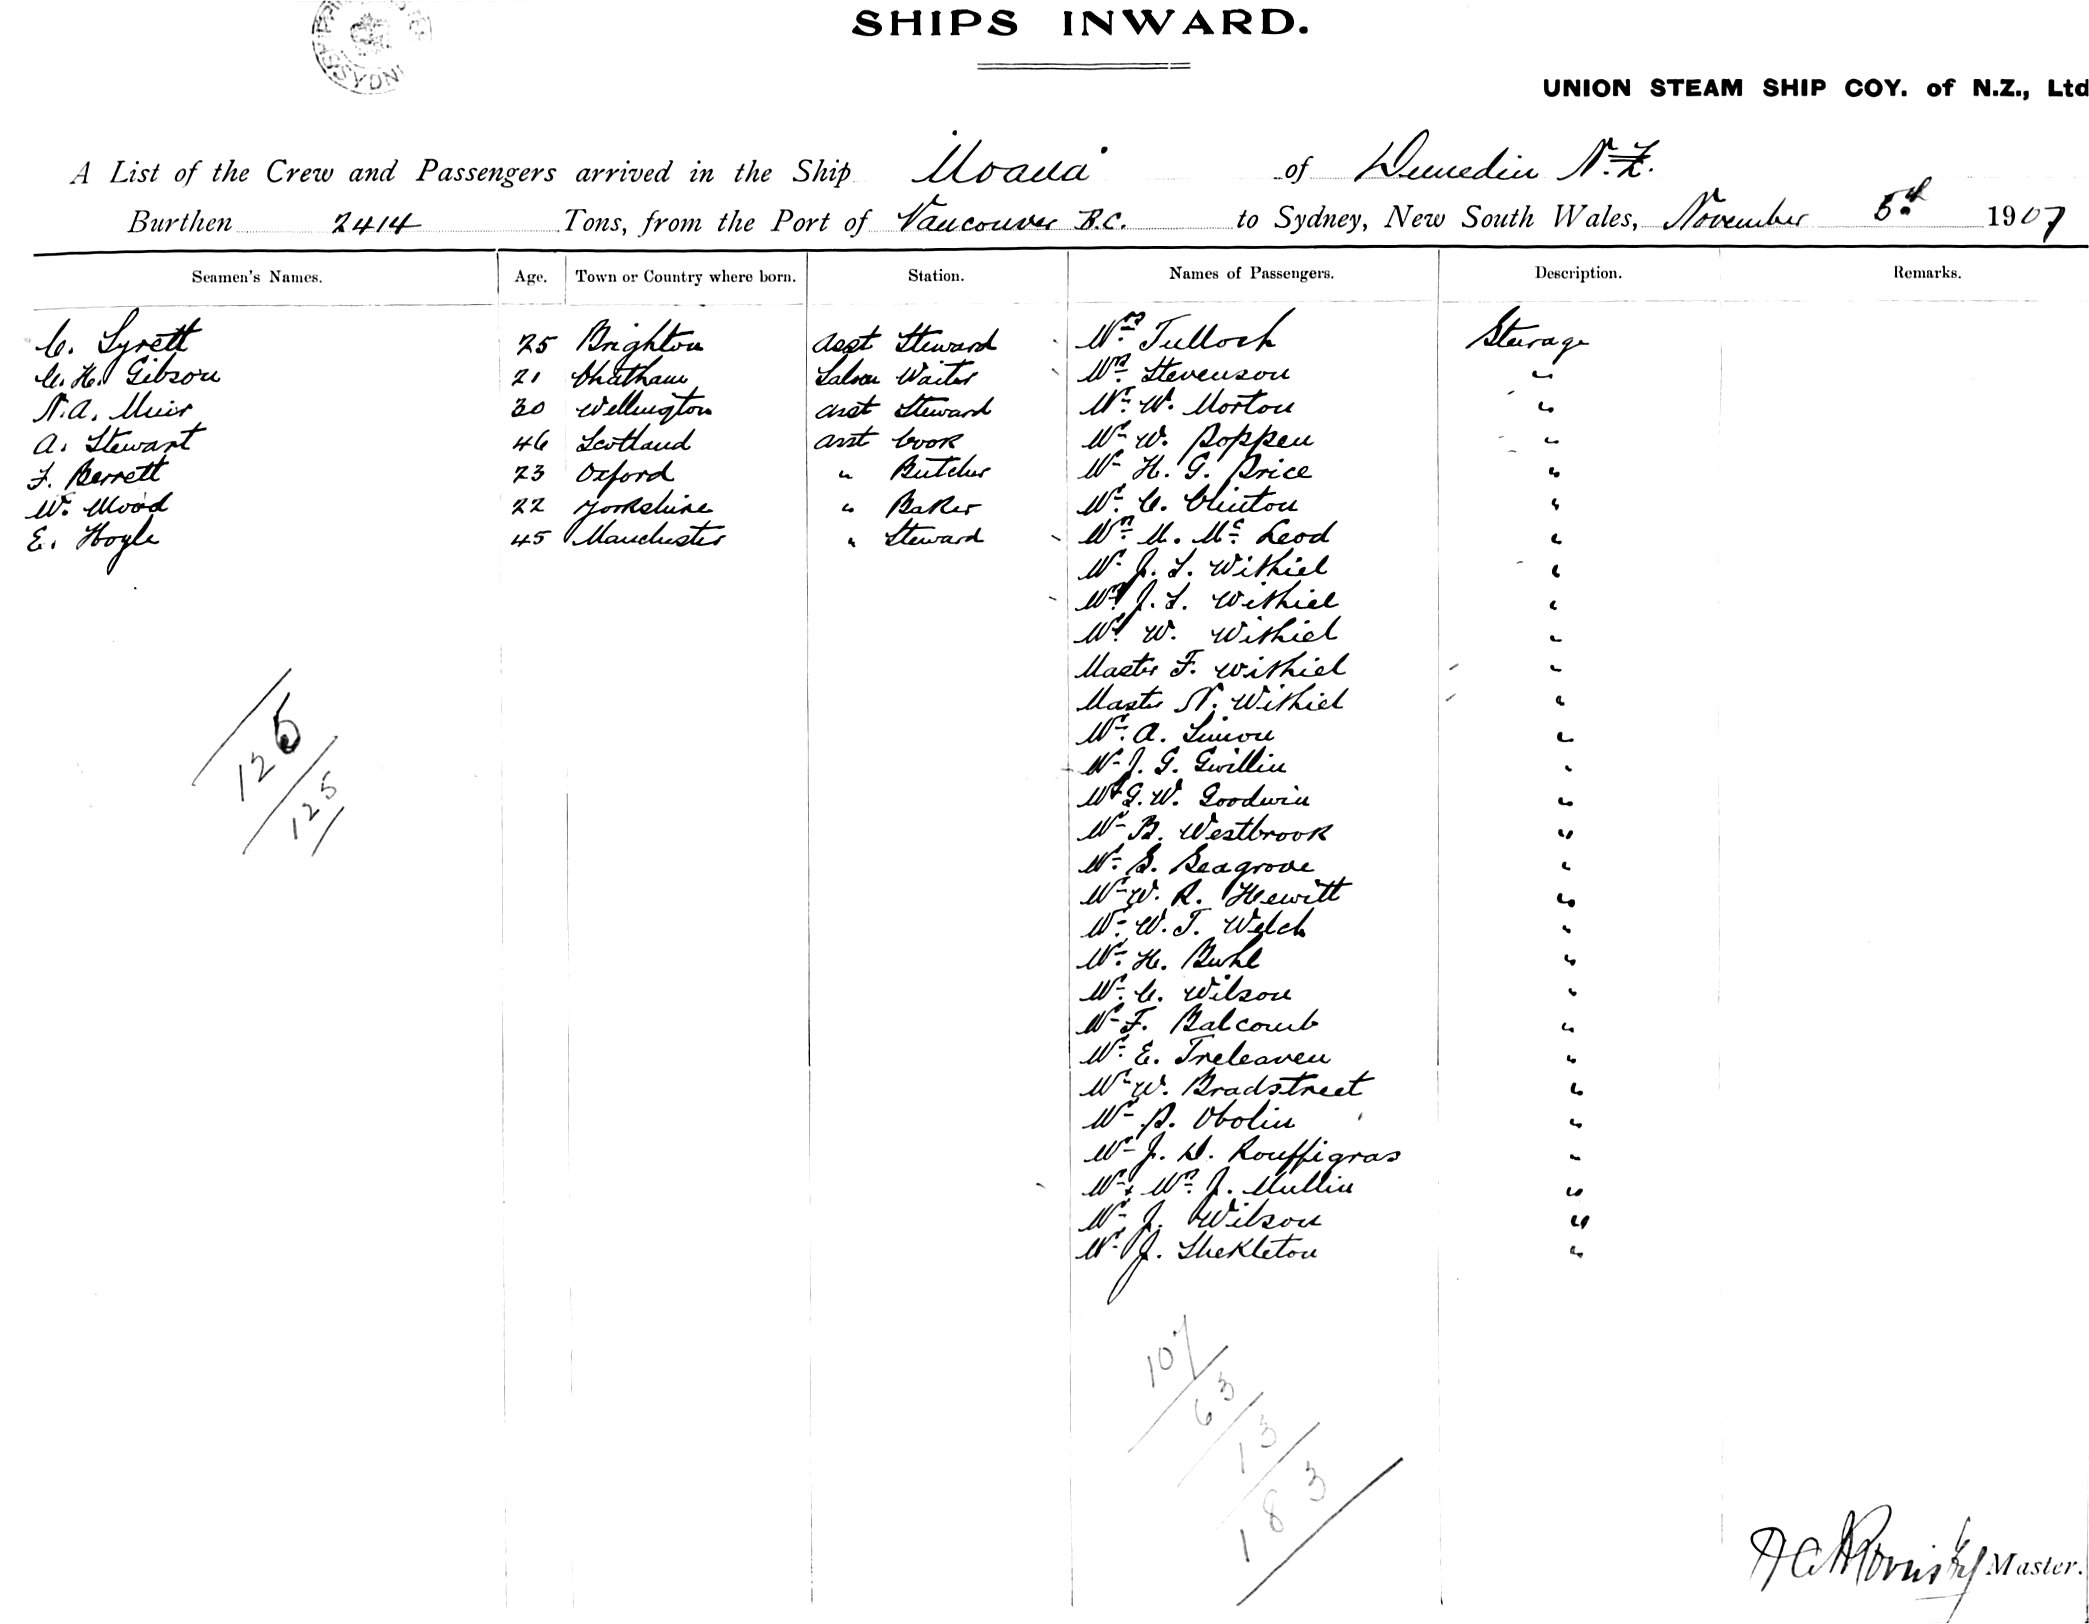 SHIPS INWARD.
UNION STEAM SHIP COY. of N.Z., Ltd
A List of the Crew and Passengers arrived in the Ship Moana of Dunedin N.Z.
Burthen 2414 Tons, from the Port of Vancouver B.C. to Sydney, New South Wales, November 5th 1907
Seamen's Names. Age. Town or Country where born. Station. Names of Passengers. Description. Remarks.
C. Syrett 25 Brighton asst Steward Mrs Tulloch Steerage
C. H. Gibson 21 Chatham Saloon Waiter Mrs. Stevenson "
N. A. Muir 30 Wellington asst Steward Mr. W. Morton "
A. Stewart 46 Scotland asst Cook Mr W. Poppen "
F. Berrett 23 Oxford " Butcher Mr H. G. Price "
W. Wood 22 Yorkshire " Baker Mr. C. Clinton "
E. Hoyle 45 Manchester " Steward Mrs M. McLeod "
Mr J. S. Withiel "
Mrs J. S. Withiel "
Mr W. Withiel "
Master F. Withiel "
Master N. Withiel "
Mr. A. Simon "
Mr J. G. Gwillin "
Mr G. W. Goodwin "
Mr B. Westbrook "
Mr. S. Seagrove "
Mr W. R. Hewitt "
Mr. W. T. Welch "
Mr. H. Buhl "
Mr. C. Wilson "
Mr F. Balcomb "
Mr. E. Treleaven "
Mr W. Bradstreet "
Mr P. Obolin "
Mr J. D. Rouffigras "
Mr & Mrs. J. Mullin "
Mr. J. Wilson "
Mr. J. Shekleton "
126
125
107
63
13
183
Master.